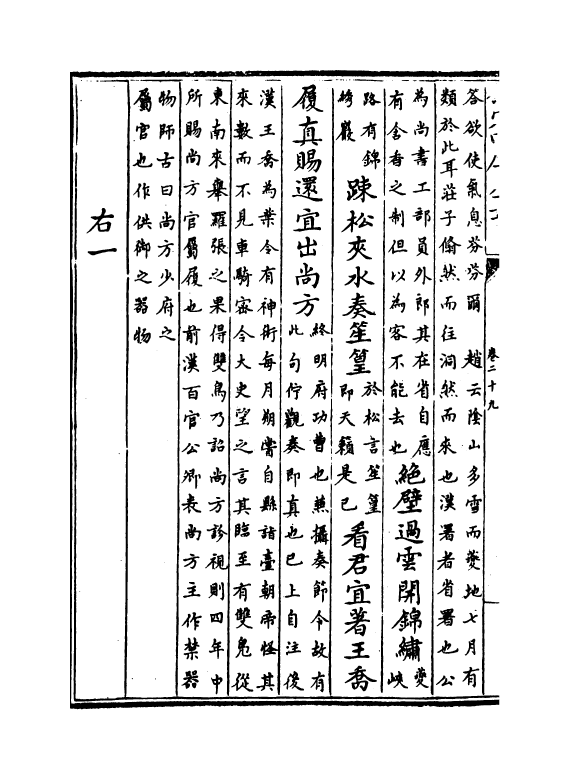 答欲使氣息芬芬爾　趙云陰山多雪而夔地七月有
類於此耳莊子翛然而往洞然而來也漢署者省署也公
為尚書工部員外郎其在省自應
有含香之制但以為客不能去也
絕壁過雲開錦繡
夔
峽
路有錦
綺巖
疎松夾水奏笙篁
於松言笙篁
即天籟是已
看君宜著王喬
履真賜還宜出尚方
終明府功曹也兼攝奏節令故有
此句佇觀奏即真也已上自注後
漢王喬為葉令有神術每月朔嘗自縣詣臺朝帝怪其
來數而不見車騎密令大史望之言其臨至有雙鳧從
東南來舉羅張之果得雙舄乃詔尚方診視則四年中
所賜尚方官屬履也前漢百官公卿表尚方主作禁器
物師古曰尚方少府之
屬官也作供御之器物
右一
卷二十九